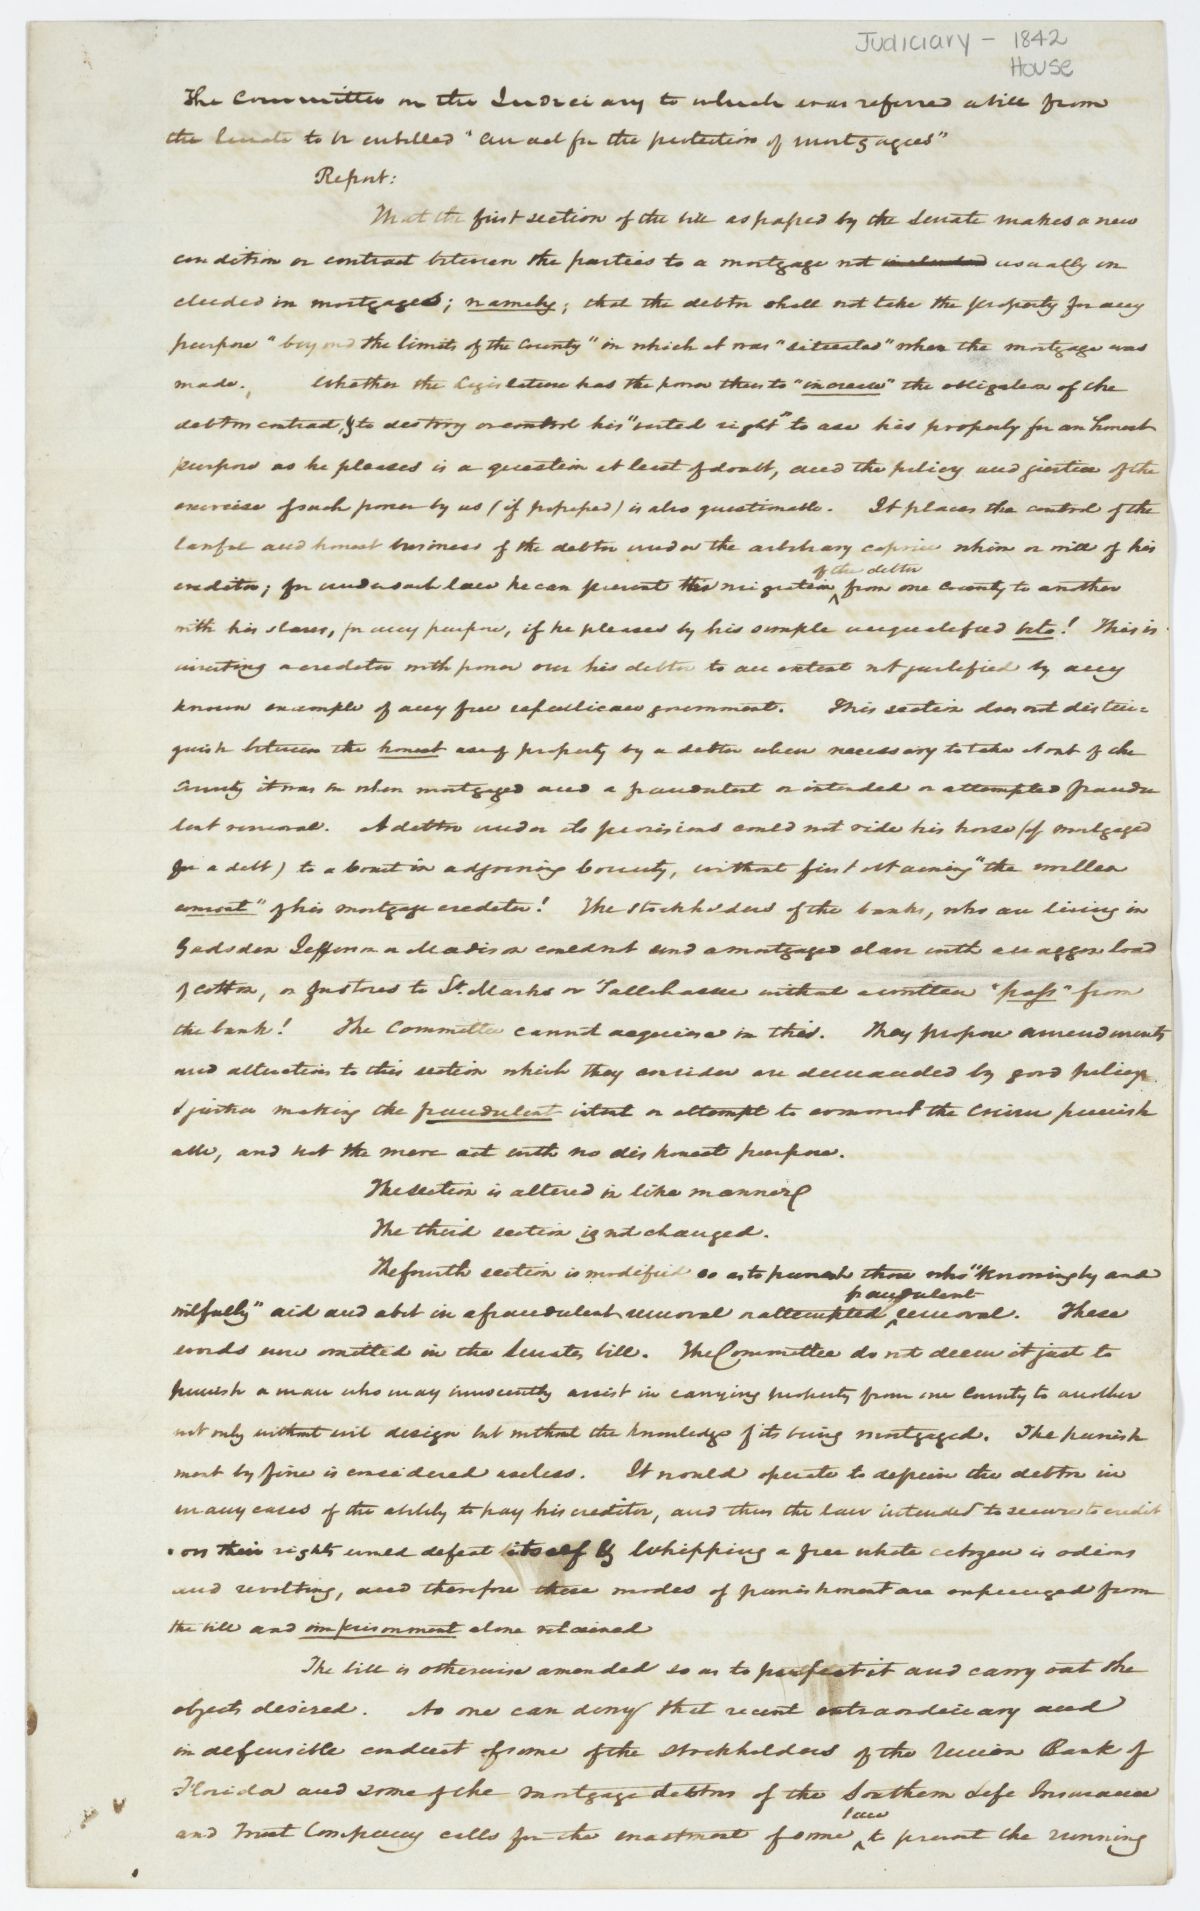 Judiciary - 1842
House
The Committee on the Judiciary to which was referred a bill from
the Senate to be entitled "An act for the protection of mortgagees"
Report:
That the first section of the bill as passed by the Senate makes a new
condition or contract between the parties to a mortgage not included usually in
cluded in mortgages; namely; that the debtor shall not take the property for any
purpose "beyond the limits of the County" in which it was "situated" when the mortgage was
made. Whether the Legislature has the power thus to "increase" the obligation of the
debtors contract, & to destroy or control his "vested right" to use his property for an honest
purpose as he pleases is a question at least of doubt, and the policy and justice of the
exercise of such power by us (if possessed) is also questionable. It places the control of the
lawful and honest business of the debtor under the arbitrary caprice whim or will of his
creditor; for under such law he can prevent the migration of the debtor from one County to another
with his slaves, for any purpose, if he pleases by his simple unqualified veto! This is
investing a creditor with power over his debtor to an extent not justified by any
known example of any free republican government. This section does not distin=
guish between the honest use of property by a debtor when necessary to take it out of the
County it was in when mortgaged and a fraudulent or intended or attempted fraudu
lent removal. A debtor under its provisions could not ride his horse (if mortgaged
for a debt) to a Court in adjoining County, without first obtaining "the written
consent" of his mortgage creditor! The stockholders of the banks, who are living in
Gadsden Jefferson or Madison could not send a mortgaged slave with a waggon load
of cotton, or for stores to St. Marks or Tallahassee without a written "pass" from
the bank! The Committee cannot acquiesce in this. They propose amendments
and alterations to this section which they consider are demanded by good policy
& justice making the fraudulent intent or attempt to commit the crime punish
able, and not the mere act with no dishonest purpose.
The section is altered in like manner
The third section is not changed.
The fourth section is modified so as to punish those who "Knowingly and
wilfully" aid and abet in a fraudulent removal or attempted fraudulent removal. These
words were omitted in the Senates bill. The Committee do not deem it just to
punish a man who may innocently assist in carrying property from one County to another
not only without evil design but without the knowledge of its being mortgaged. The punish
ment by fine is considered useless. It would operate to deprive the debtor in
many cases of the ability to pay his creditor, and thus the law intended to secure to credit
ors their rights would defeat itself & Whipping a free white citizen is odious
and revolting, and therefore these modes of punishment are expunged from
the bill and imprisonment alone retained
The bill is otherwise amended so as to perfect it and carry out the
objects desired. No one can deny that recent extraordinary and
indefensible conduct of some of the stockholders of the Union Bank of
Florida and some of the mortgage debtors of the Southern Life Insurance
and Trust Company calls for the enactment of some law to prevent the running